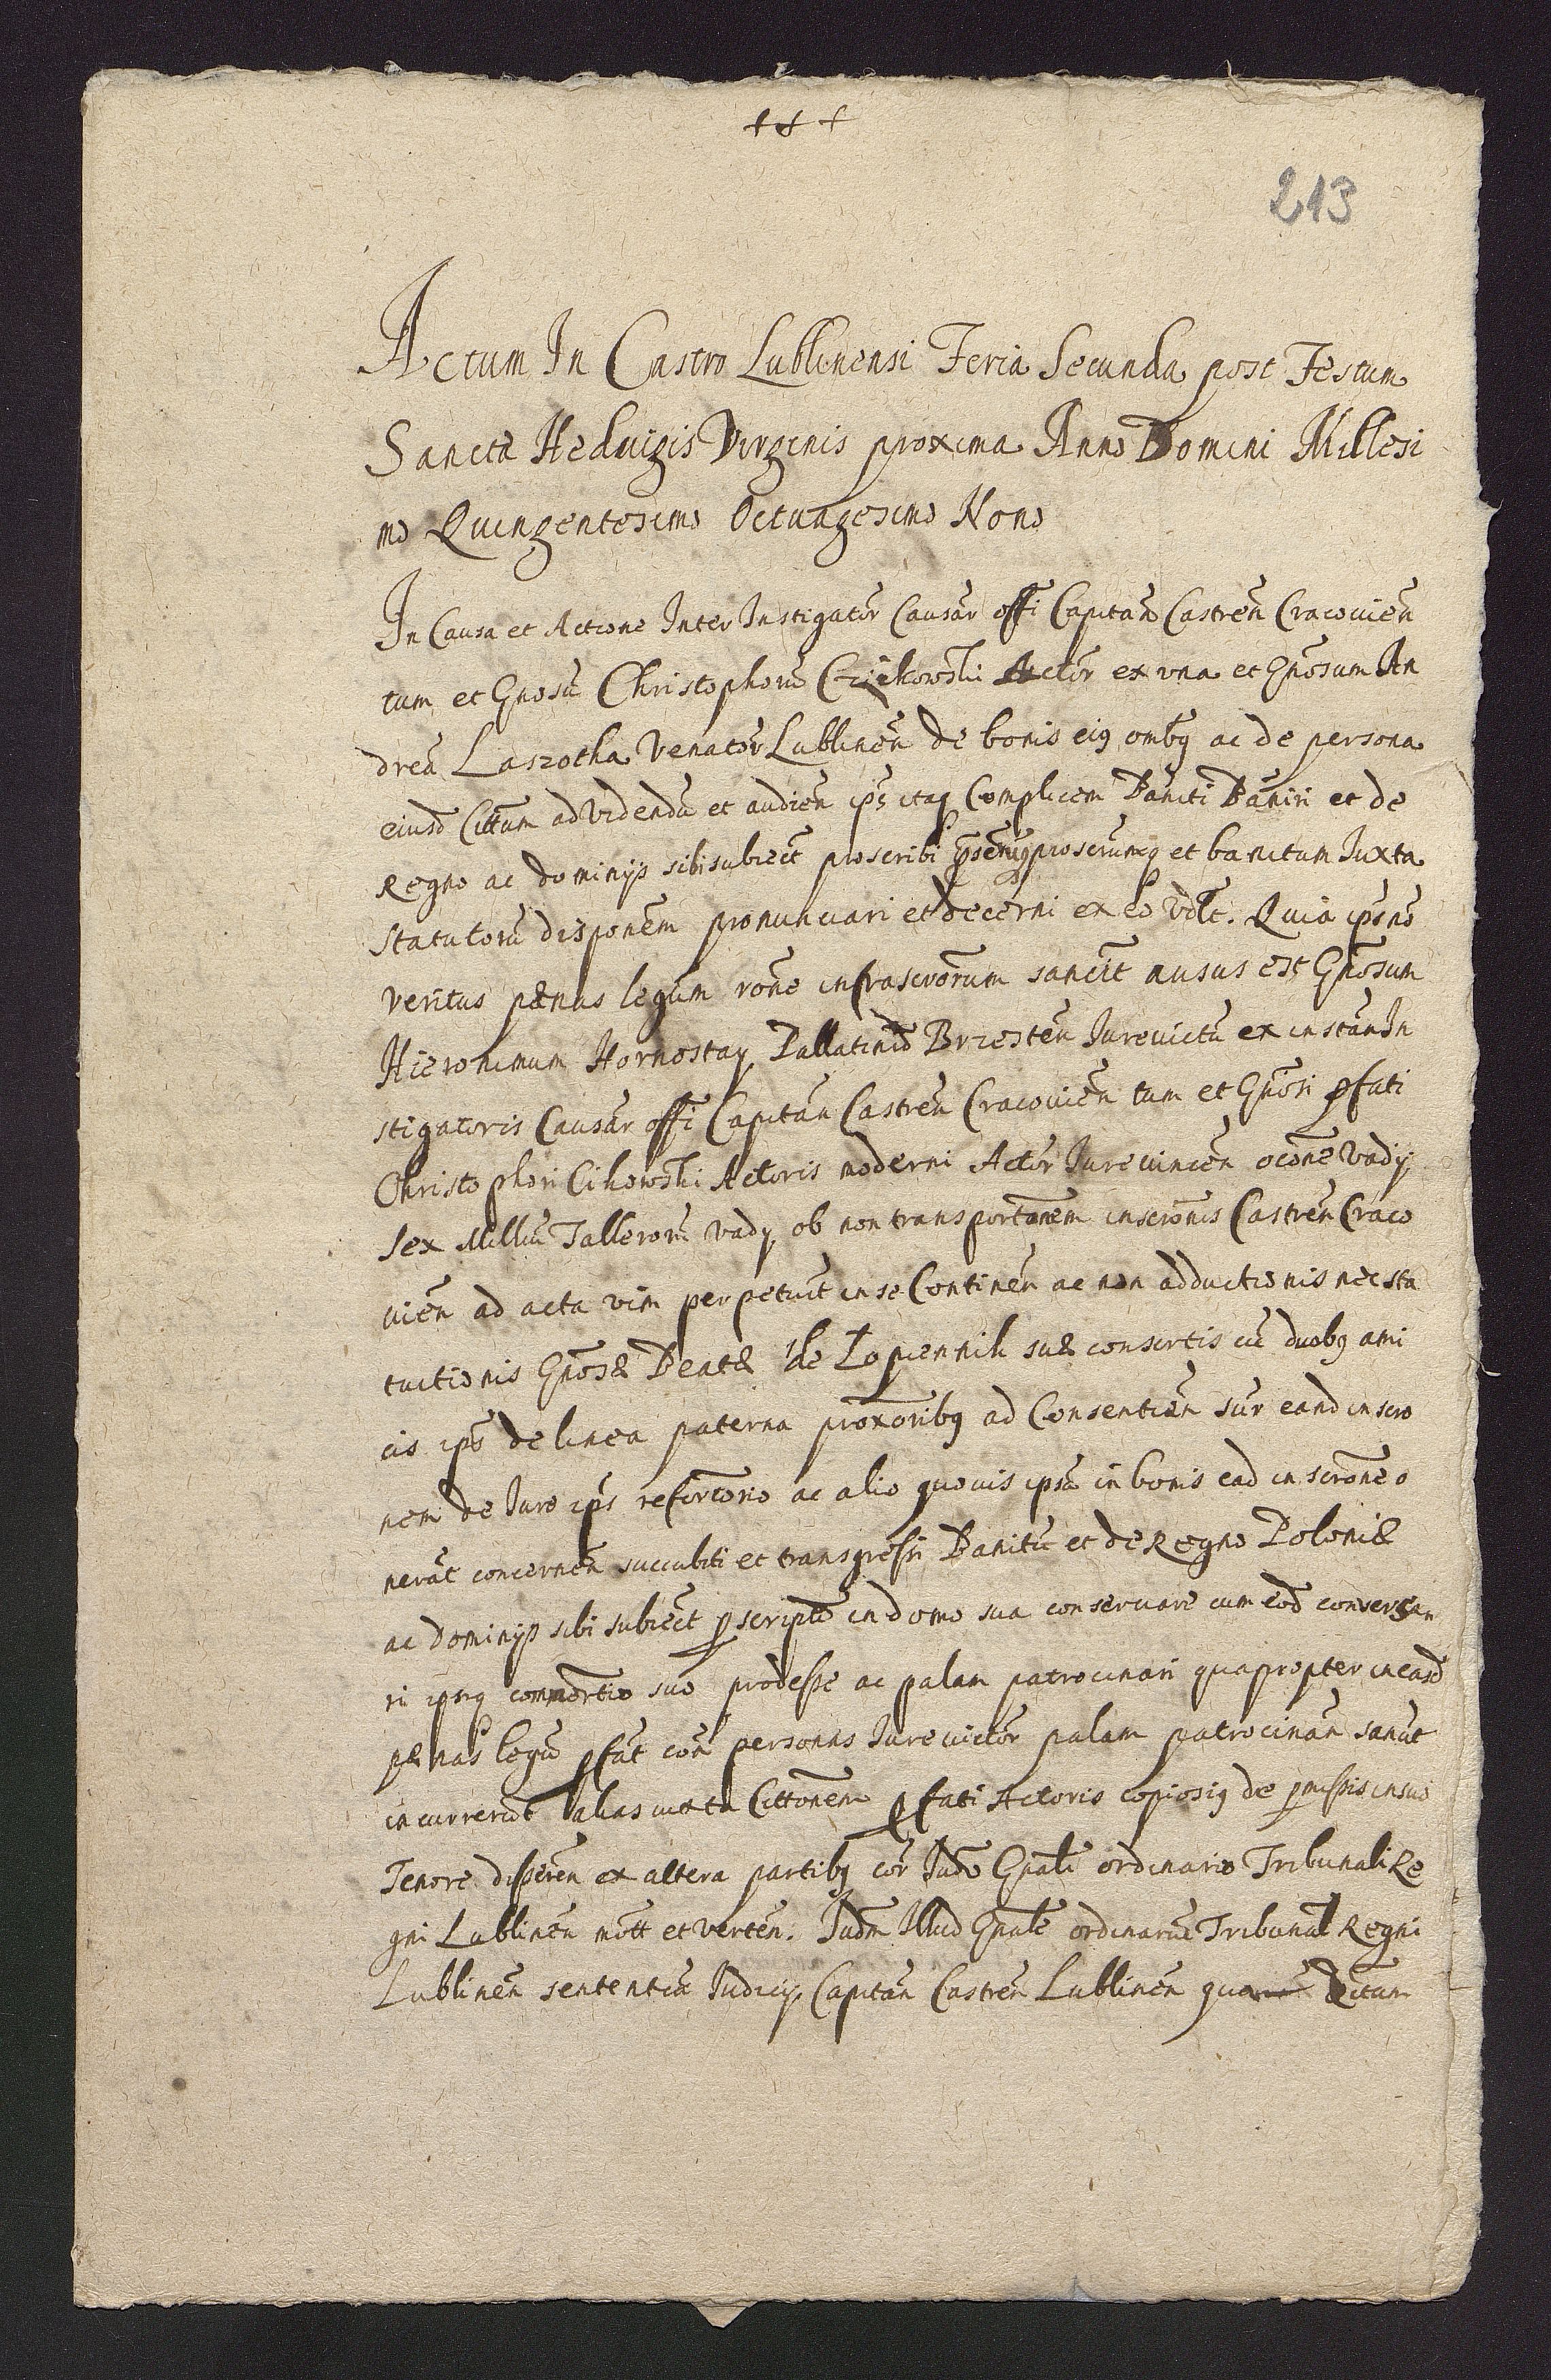 + + +
213
Actum In Castro Lublinensi Feria Secunda post Festum
Sanctæ Heduigis Virginis proxima Anno Domini Millesi
mo Quingentesimo Octuagesimo Nono
In Causa et Actione Inter Instigatōr Causār offi Capitān Castrēn Cracouiēn
tum et Gnosū Christophorū Czikowski Actōr ex vna et Gnōsum An
dreā Laszotha Venatōr Lublinēn de bonis eiꝰ ombꝰ ac de persona
eiusd Cittum ad videndū et audiēn ips itaqꝫ Complicem Bāniti Bāniri et de
Regno ac dominijs sibi subiect proscribi et banitum Iuxta
statutorū disponem pronunciari et decerni ex eo vdlt. Quia ips no
veritus pænas legūm rōne infrascrorum sancit ausus est Gnōsum
Hieronimum Hornostay Pallatinid Brzestēn Iurevictū ex instān In
stigatoris Causār offi Capitān Castrēn Cracouiēn tum et Gnōsi ꝓfati
Christophori Cikowski Actoris moderni Actōr Iure vincēn ocōne vadij
sex Milliū Tallerorū vadij ob non transportanem inscronis Castrēn Craco
uiēn ad acta vim perpetuit in se Continēn ac non adductionis nec sta
tuitionis Gnosæ Beatæ de Lopiennik suæ consortis cū duobꝰ ami
cis ips de linea paterna proxoribꝰ ad Consentiēn sūr eand inscro
nem de Iure ips reformtorio ac alio quouis ipsū in bonis ead inscrone o
nerāt concernēn succubiti et transgressi Banitū et de Regno Poloniæ
ac dominijs sibi subiect ꝓscriptū in domo sua conseruare cum eod conversan
ri ipsiqꝫ commertio suo prodesse ac palam patrocinari quapropter in easd
pænas legū ꝓfat con personas Iurevictōr palam patrocinān sanut
incurrerut alias iuxta Cittonem ꝓfati Actoris copiosiꝰ de pmissis in suo
Tenore disserēn ex altera partibꝰ cor Iudo Gnali ordinario Tribunali Re
gni Lublinēn mott et vertēn. Iudm Illud Gnale ordinariū Tribunal Regni
Lublinēn sententiā Iudicij Capitān Castrēn Lublinēn Dictum